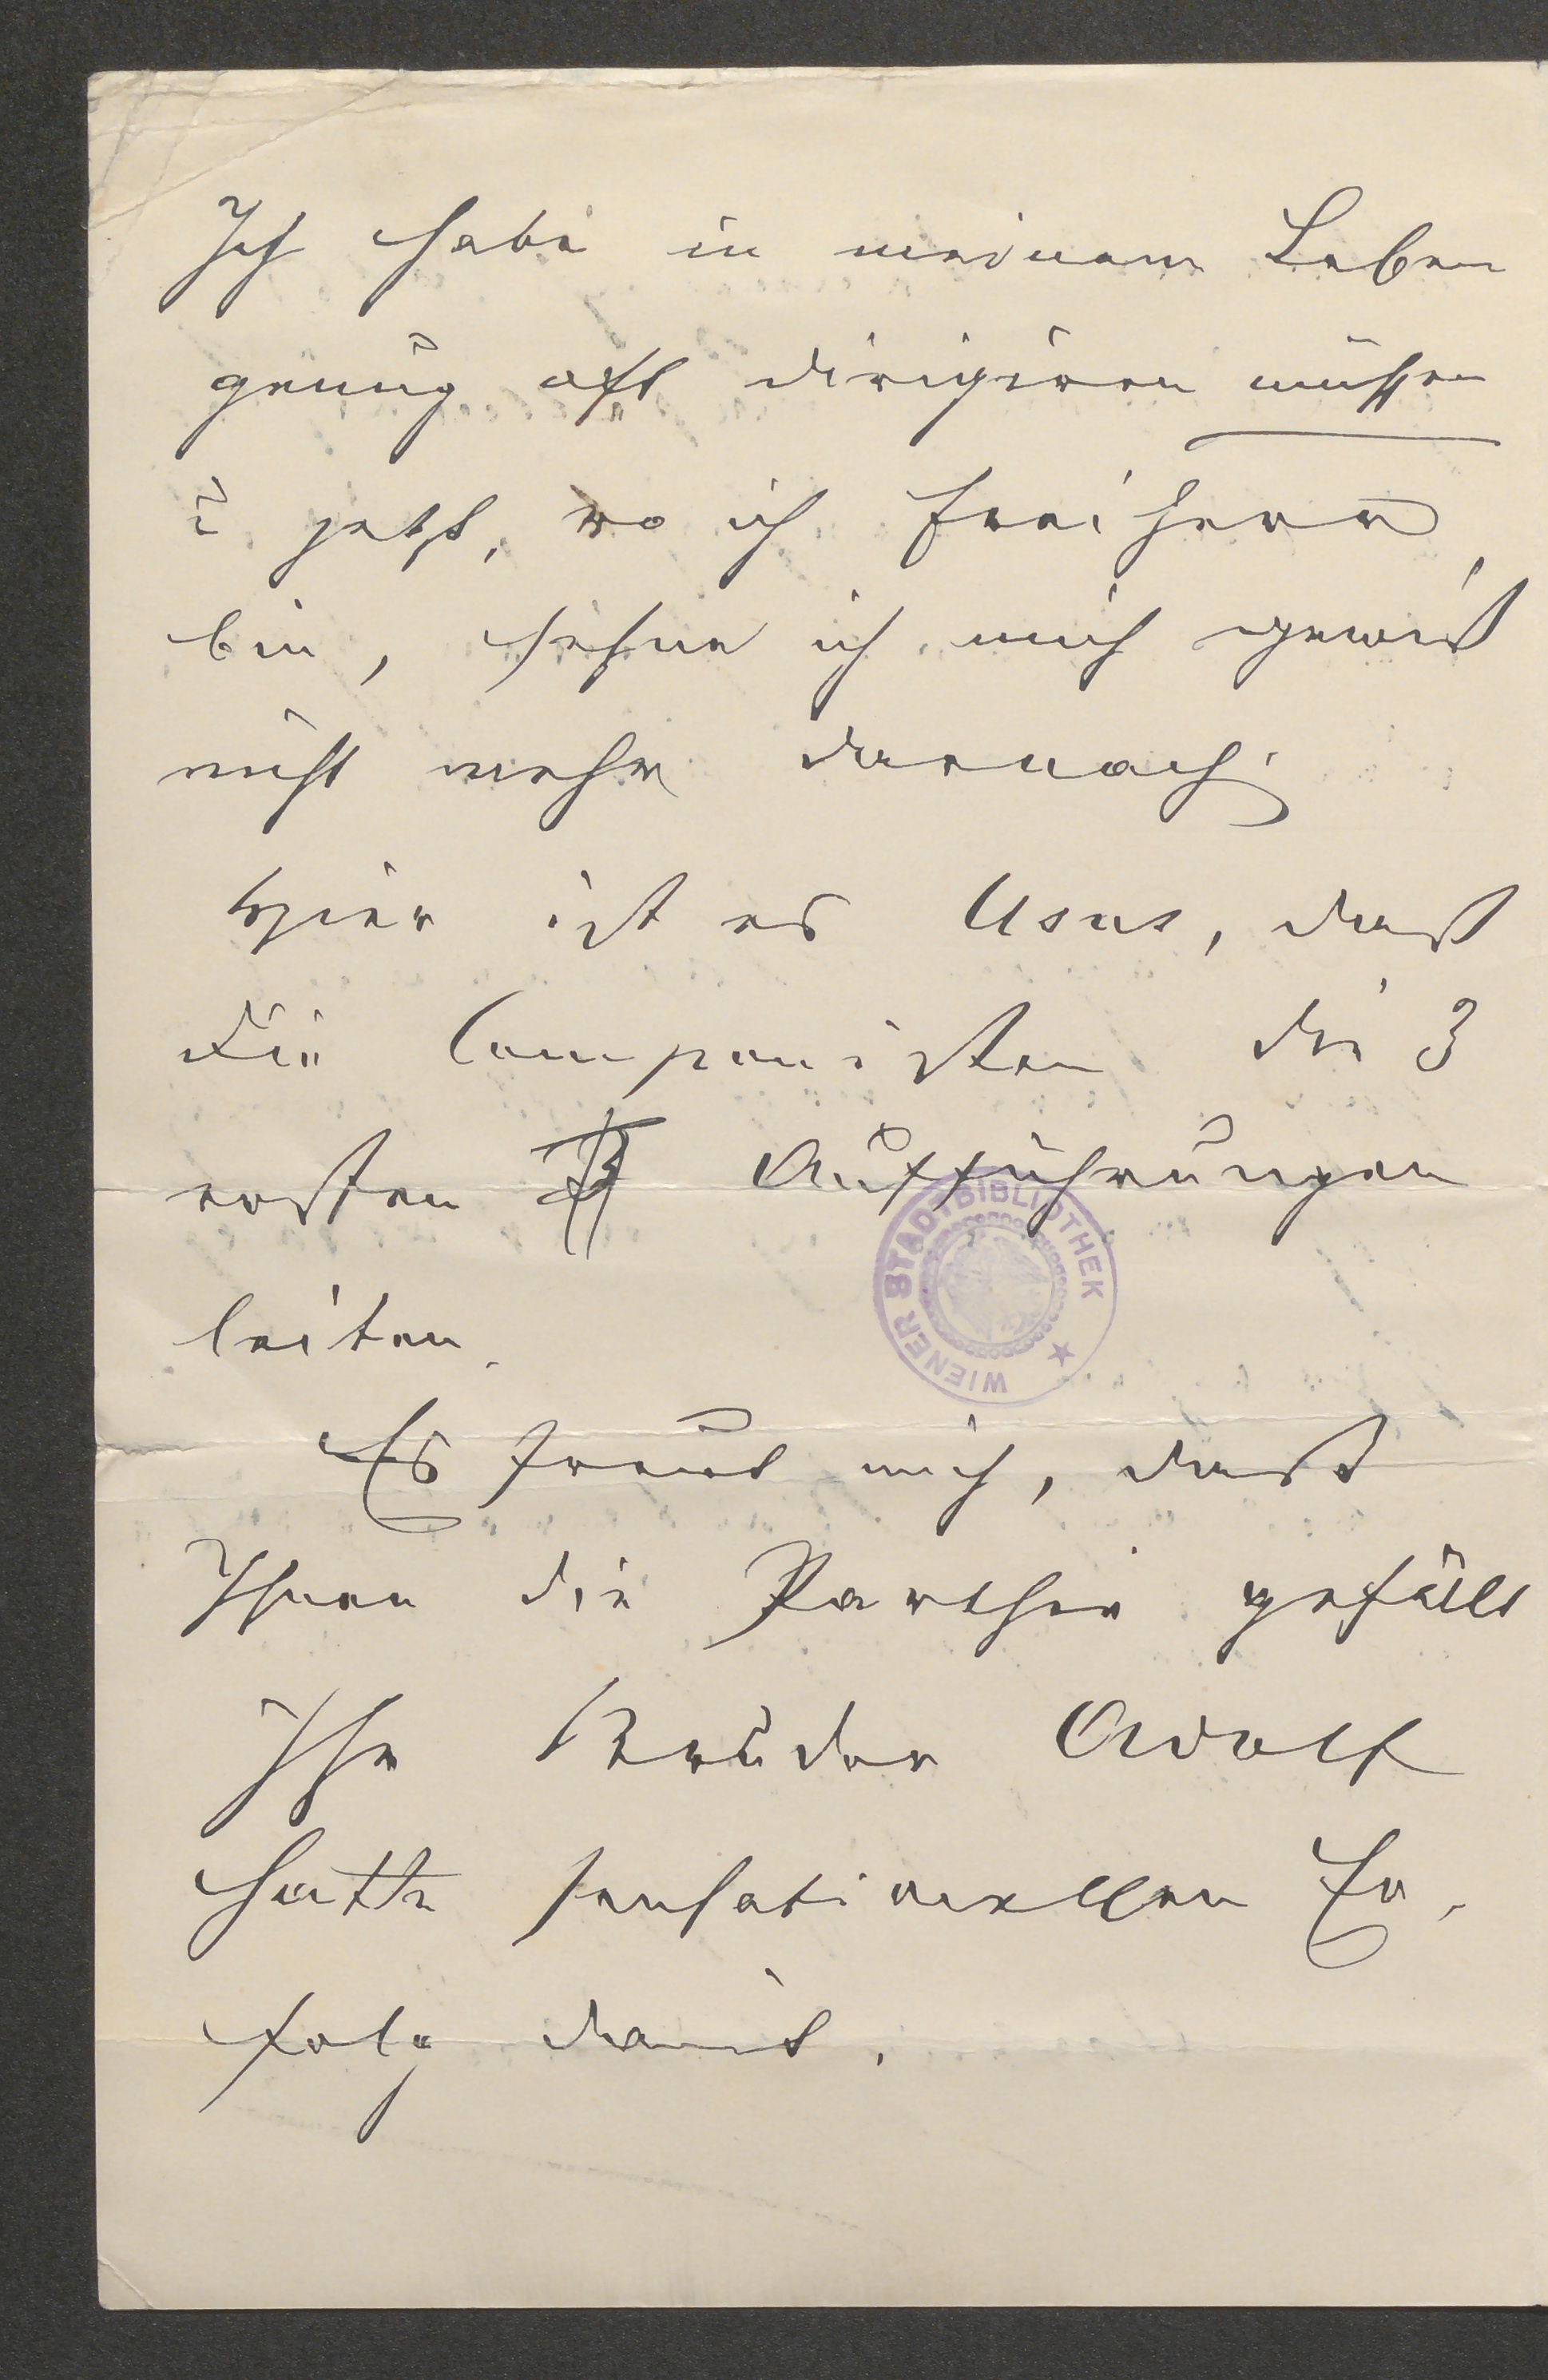 Ich habe in meinem Leben
genug oft dirigiren müssen
u jetzt, wo ich freiherr
bin, sehne ich mich gewiß
nicht mehr darnach.
Hier ist es Usus, daß
die Componisten die 3
ersten Aufführungen
leiten.
Es freut mich, daß
Ihnen die Parthie gefällt
Ihr Bruder Adolf
hatte sensationellen Er-
folg damit.
WIENER STADTBIBLIOTHEK